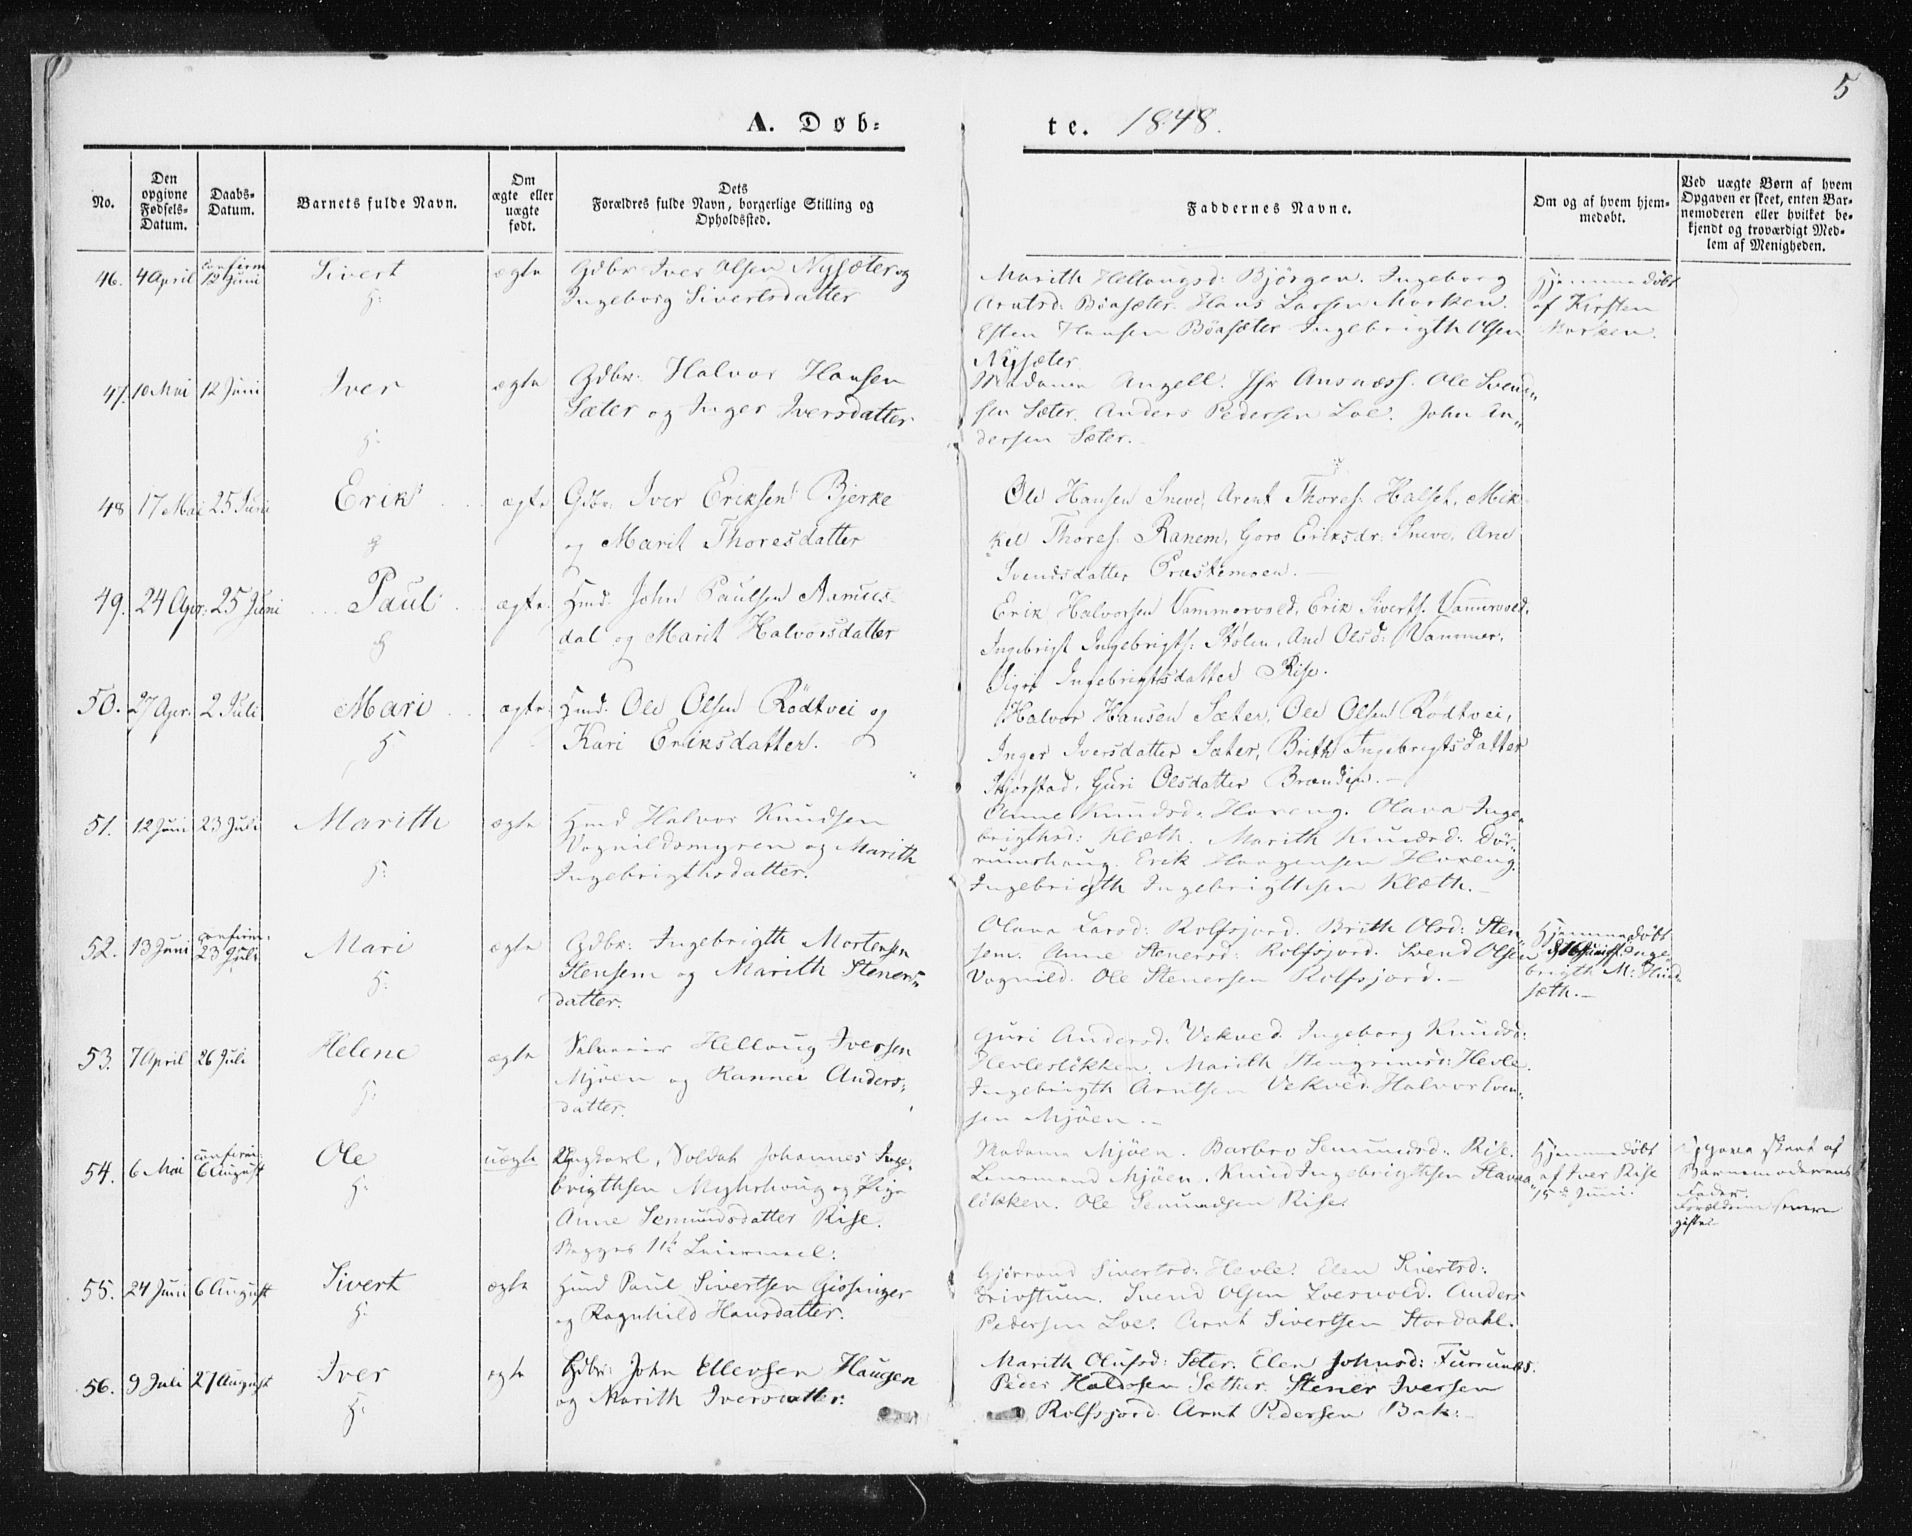 5
A. Døb-
te. 1848.
No.
Den opgivne Fødsels-Datum.
Daabs-Datum.
Barnets fulde Navn.
Om ægte eller uægte født.
Dets Forældres fulde Navn, borgerlige Stilling og Opholdssted.
Faddernes Navne.
Om og af hvem hjemmedøbt.
Ved uægte Børn af hvem Opgaven er skeet, enten Barnemoderen eller hvilket bekjendt og troværdigt Medlem af Menigheden.
46. 4 April confirm 12 Juni Sivert ægte Gdbr Iver Olsen Nysæter og
Ingeborg Sivertsdatter
H:
Marith Hellougsd: Bjørgen. Ingeborg
Arntsd: Böasæter. Hans Larsen Morken.
Esten Hansen Böasæter Ingebrigth Olsen
Nysæter
Hjemmedøbt
af Kirsten
Morken.
47. 10 Mai 12 Juni Iver ægte Gdbr: Halvor Hansen
Sæter og Inger Iversdatter
H:
Madame Angell. Jfr Ansnæss. Ole Svend-
sen Sæter. Anders Pedersen Loe. John An-
dersen Sæter.
48 17 Mai 25 Juni Erik ægte Gdbr. Iver Eriksen Bjerke
og Marit Thoresdatter
Ole Hansen Sneve, Arent Thores: Halset, Mik-
kel Thores: Ranem, Goro Eriksdr: Sneve, Ane
Svendsdatter
49. 24 Apr: 25 Juni Paul ægte Hmd. John Paulsen Aamus-
dal og Marit Halvorsdatter
Erik Halvorsen Vammervold, Erik Siverts. Vammervold,
Ingebrigt Ingebrigts: Stölen, Ane Olsd: Vammer,
Sigri Ingebrigtsdatter Rise.
50. 27 Apr. 2 Juli Mari ægte Hmd. Ole Olsen Rödtvei og
Kari Eriksdatter.
H:
Halvor Hansen Sæter, Ole Olsen Rödtvei,
Inger Iversdatter Sæter, Brith Ingebrigtsdatter
Stjörstad, Guri Olsdatter
51. 12 Juni 23 Juli Marith ægte Hmd Halvor Knudsen
Vognildsmyren og Marith
Ingebrigthsdatter.
H:
Anne Knudsd: Horeng. Olava Inge-
brigthsd: Klæth. Marith Knudsd: Dör-
rumshaug. Erik Haagensen Horeng.
Ingebrigth Ingebrigthsen Klæth.
52. 13 Juni confirm: 23 Juli Mari ægte Gdbr: Ingebrigth Mortensen
Stensem og Marith Steners-
datter.
H:
Olava Larsd: Rolfsjord. Brith Olsd: Sten-
sem. Anne Stenersd: Rolfsjord. Svend Olsen
Vognild. Ole Stenersen Rolfsjord.
Hjemmedøbt
Inge-
brigth M: Hind-
sæth.
53. 7 April 26 Juli Helene ægte Helloug Iversen
Mjöen og Rannei Anders-
datter.
H:
Guri Andersd: Vekved. Ingeborg Knudsd:
Hevleslökken. Marith Stengrimsd: Hevle.
Ingebrigth Arntsen Vekved. Halvor Even-
sen Mjöen.
54. 6 Mai confirm: 6 August Ole uægte Ungkarl, Soldat Johannes Inge-
brigthsen Myhrhoug og Pige
Anne Semundsdatter Rise.
Begges 1ste Leiermaal.
H:
Madame Mjöen. Barbro Semundsd: Rise.
Lensmand Mjöen. Knud Ingebrigthsen Stavaa-
lökken. Ole Semundsen Rise.
Hjemmedøbt
af Iver Rise
15de Juni.
Opgaven skeet af
Barnemoderens
Fader.
Forældrene senere
gifte.
55. 24 Juni 6 August Sivert ægte Hmd Paul Sivertsen Gissinger
og Ragnhild Hansdatter.
H:
Gjörrond Sivertsd: Hevle. Elen Sivertsd:
Drivstuen. Svend Olsen Loervold. Anders
Pedersen Loe. Arnt Sivertsen Stordahl.
56. 9 Juli 27 August Iver ægte Gdbr: John Ellevsen Haugen
og Marith Iversdatter.
H:
Marith Olufsd: Sæter. Elen Johnsd: Furrunes.
Peter Haldosen Sæther. Stener Iversen
Rolfsjord. Arnt Pedersen Bak.